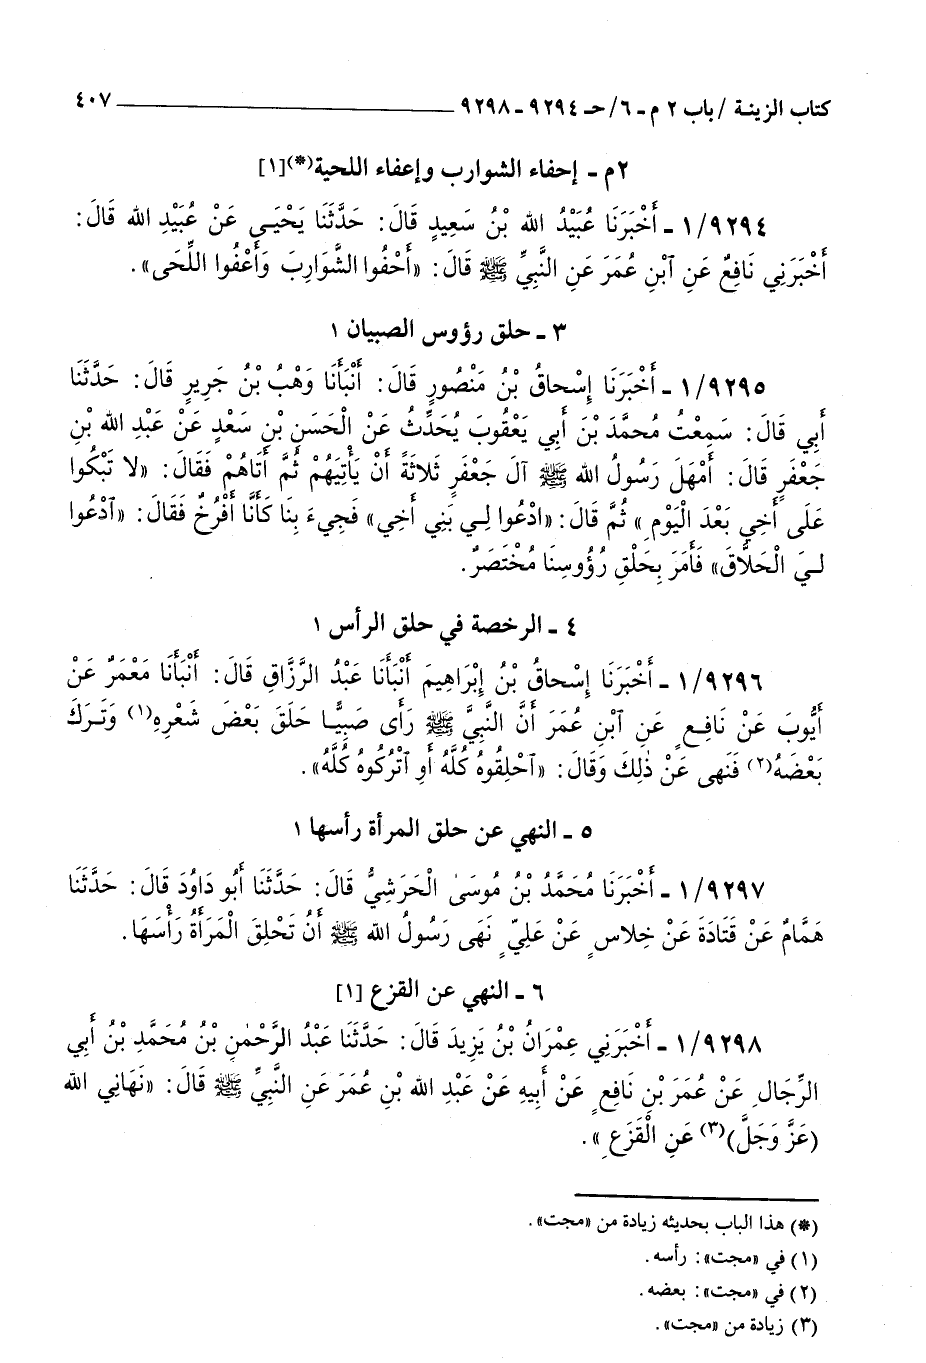 كتاب الزينة / باب ٢ م - ٦/ حـ ٩٢٩٤ - ٩٢٩٨ ٤٠٧
٢م - إحفاء الشوارب وإعفاء اللحية(*)[١]
١/٩٢٩٤ - أَخْبَرَنَا عُبَيْدُ الله بْنُ سَعِيدٍ قَالَ: حَدَّثَنَا يَحْيَـى عَنْ عُبَيْدِ الله قَالَ:
أَخْبَرَنِي نَافِعٌ عَنِ ٱبْنِ عُمَرَ عَنِ النَّبِيِّ ﷺ قَالَ: «أَحْفُوا الشَّوَارِبَ وَأَعْفُوا اللِّحَى».
٣ - حلق رؤوس الصبيان ١
١/٩٢٩٥ - أَخْبَرَنَا إِسْحاقُ بْنُ مَنْصُورٍ قَالَ: أَنْبَأَنَا وَهْبُ بْنُ جَرِيرٍ قَالَ: حَدَّثَنَا
أَبِي قَالَ: سَمِعْتُ مُحمَّدَ بْنَ أَبِي يَعْقُوبَ يُحَدِّثُ عَنْ الْحَسَنِ بْنِ سَعْدٍ عَنْ عَبْدِ الله بْنِ
جَعْفَرٍ قَالَ: أَمْهَلَ رَسُولُ الله ﷺ آلَ جَعْفَرٍ ثَلاثَةً أَنْ يَأْتِيَهُمْ ثُمَّ أَتَاهُمْ فَقَالَ: «لا تَبْكُوا
عَلَى أَخِي بَعْدَ الْيَوْمِ» ثُمَّ قَالَ: «ادْعُوا لِـي بَنِي أَخِي» فَجِيءَ بِنَا كَأَنَّا أَفْرُخٌ فَقَالَ: «ٱدْعُوا
لـيَ الْحَلاَّقَ» فَأَمَرَ بِحَلْقِ رُؤُوسِنَا مُخْتَصَرٌ.
٤ - الرخصة في حلق الرأس ١
١/٩٢٩٦ - أَخْبَرَنَا إِسْحاقُ بْنُ إِبْرَاهِيمَ أَنْبَأَنَا عَبْدُ الرَّزَّاقِ قَالَ: أَنْبَأَنَا مَعْمَرٌ عَنْ
أَيُّوبَ عَنْ نَافِعٍ عَنِ ٱبْنِ عُمَرَ أَنَّ النَّبِيَّ ﷺ رَأَى صَبِيًّا حَلَقَ بَعْضَ شَعْرِهِ(١) وَتَـرَكَ
بَعْضَهُ(٢) فَنَهى عَنْ ذٰلِكَ وَقَالَ: «ٱحْلِقُوهُ كُلَّهُ أَوِ ٱتْرُكُوهُ كُلَّهُ».
٥ - النهي عن حلق المرأة رأسها ١
١/٩٢٩٧ - أَخْبَرَنَا مُحَمَّدُ بْنُ مُوسَىٰ الْحَرَشِيُّ قَالَ: حَدَّثَنَا أَبُو دَاوُدَ قَالَ: حَدَّثَنَا
هَمَّامٌ عَنْ قَتَادَةَ عَنْ خِلاسٍ عَنْ عَلِيٍّ نَهَى رَسُولُ الله ﷺ أَنْ تَحْلِقَ الْمَرَأَةُ رَأْسَهَا.
٦ - النهي عن القزع [١]
١/٩٢٩٨ - أَخْبَرَنِي عِمْرَانُ بْنُ يَزِيدَ قَالَ: حَدَّثَنَا عَبْدُ الرَّحْمٰنِ بْنُ مُحَمَّدِ بْنُ أَبِي
الرِّجَالِ عَنْ عُمَرَ بْنِ نَافِعٍ عَنْ أَبِيهِ عَنْ عَبْدِ الله بْنِ عُمَرَ عَنِ النَّبِيِّ ﷺ قَالَ: «نَهَانِي الله
(عَزَّ وَجَلَّ)(٣) عَنِ الْقَزَعِ».
(*) هذا الباب بحديثه زيادة من «مجت».
(١) في «مجت»: رأسه.
(٢) في «مجت»: بعضه.
(٣) زيادة من «مجت».